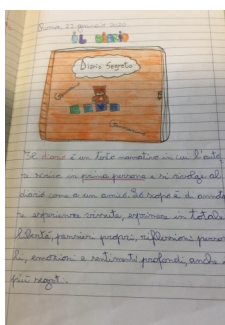 22 gennaio 2020
IL DIARIO
Diario Segreto
Il diario è un testo narrativo in cui l'auto
re scrive in prima persona e si rivolge al
diario come a un amico. Lo scopo è di annota
re esperienze vissute, esprimere in totale
libertà, pensieri propri, riflessioni perso
li, emozioni e sentimenti profondi, anche
più segreti.